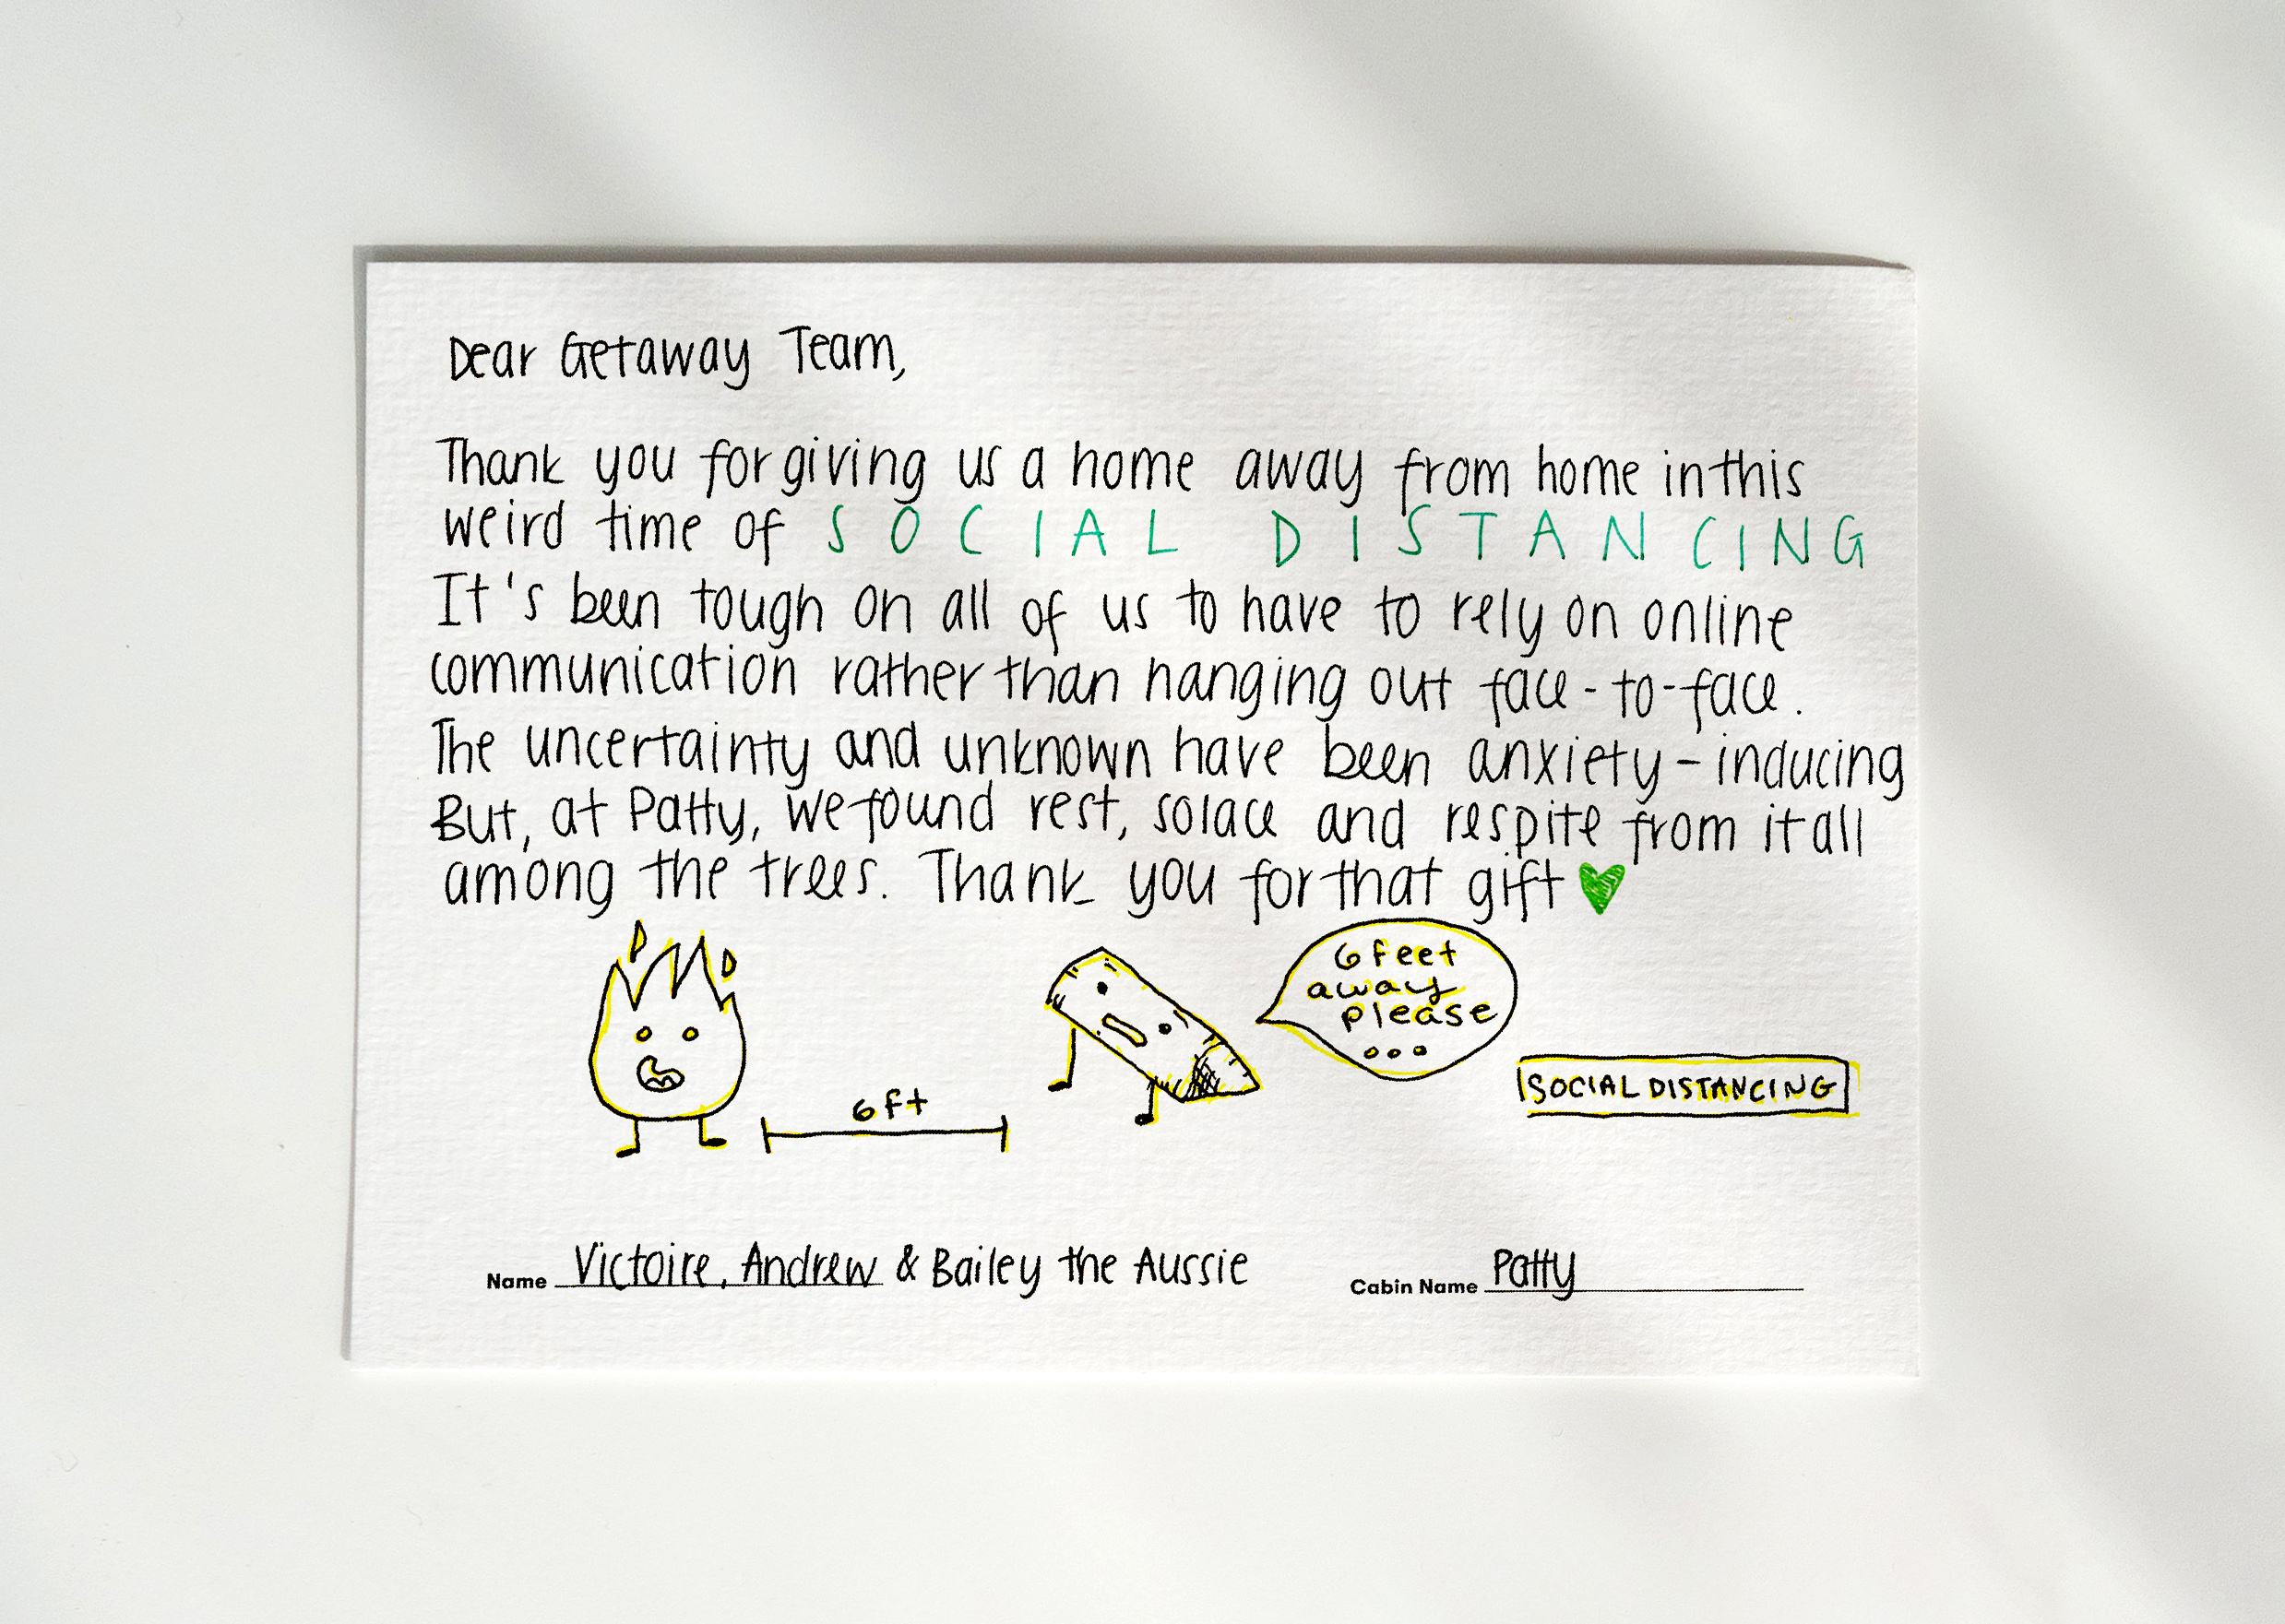 Dear Getaway Team,
Thank you for giving us a home away from home in this
weird time of SOCIAL DISTANCING
It's been tough on all of us to have to rely on online
communication rather than hanging out face-to-face.
The uncertainty and unknown have been anxiety-inducing
But, at Patty, we found rest, solace and respite from it all
among the trees. Thank you for that gift
6 feet
away
please
...
6 ft
SOCIAL DISTANCING
Name Victoire, Andrew & Bailey the Aussie
Cabin Name Patty